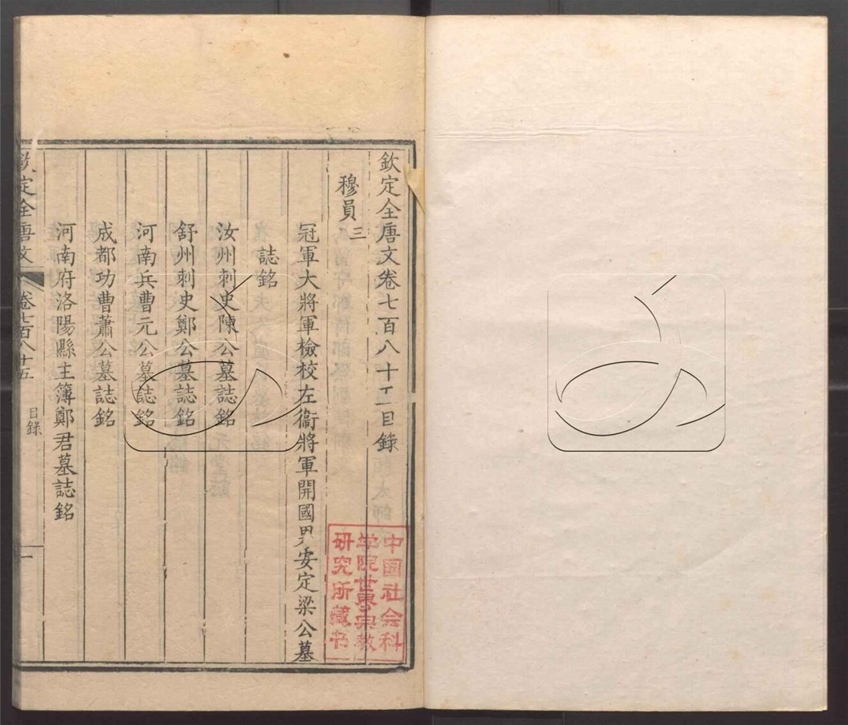 欽定全唐文卷七百八十五目錄
穆員三
冠軍大將軍檢校左衞將軍開國男安定梁公墓
誌銘
汝州刺史陳公墓誌銘
舒州刺史鄭公墓誌銘
河南兵曹元公墓誌銘
成都功曹蕭公墓誌銘
河南府洛陽縣主簿鄭君墓誌銘
欽定全唐文 卷七百八十五 目錄 一
中國社会科
学院世界宗教
研究所藏书